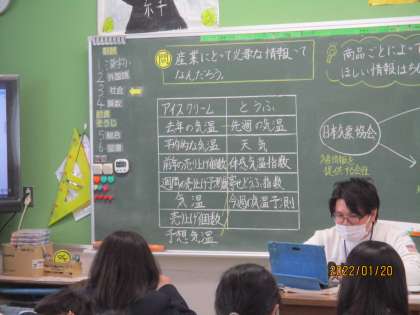 産業にとって必要な情報って
なんだろう。
商品ごとによ
ほしい情報はち
アイスクリーム
とうふ
去年の気温
先週の気温
平均的な気温
天気
前年の売り上げ個数
体感気温指数
週間の売り上げ予測
寄せどうふ指数
気温
今週の気温予測
売り上げ個数
予想気温
日本気象協会
1
2 外国語
3 社会
4 算数
5 総合
6
2022/01/20